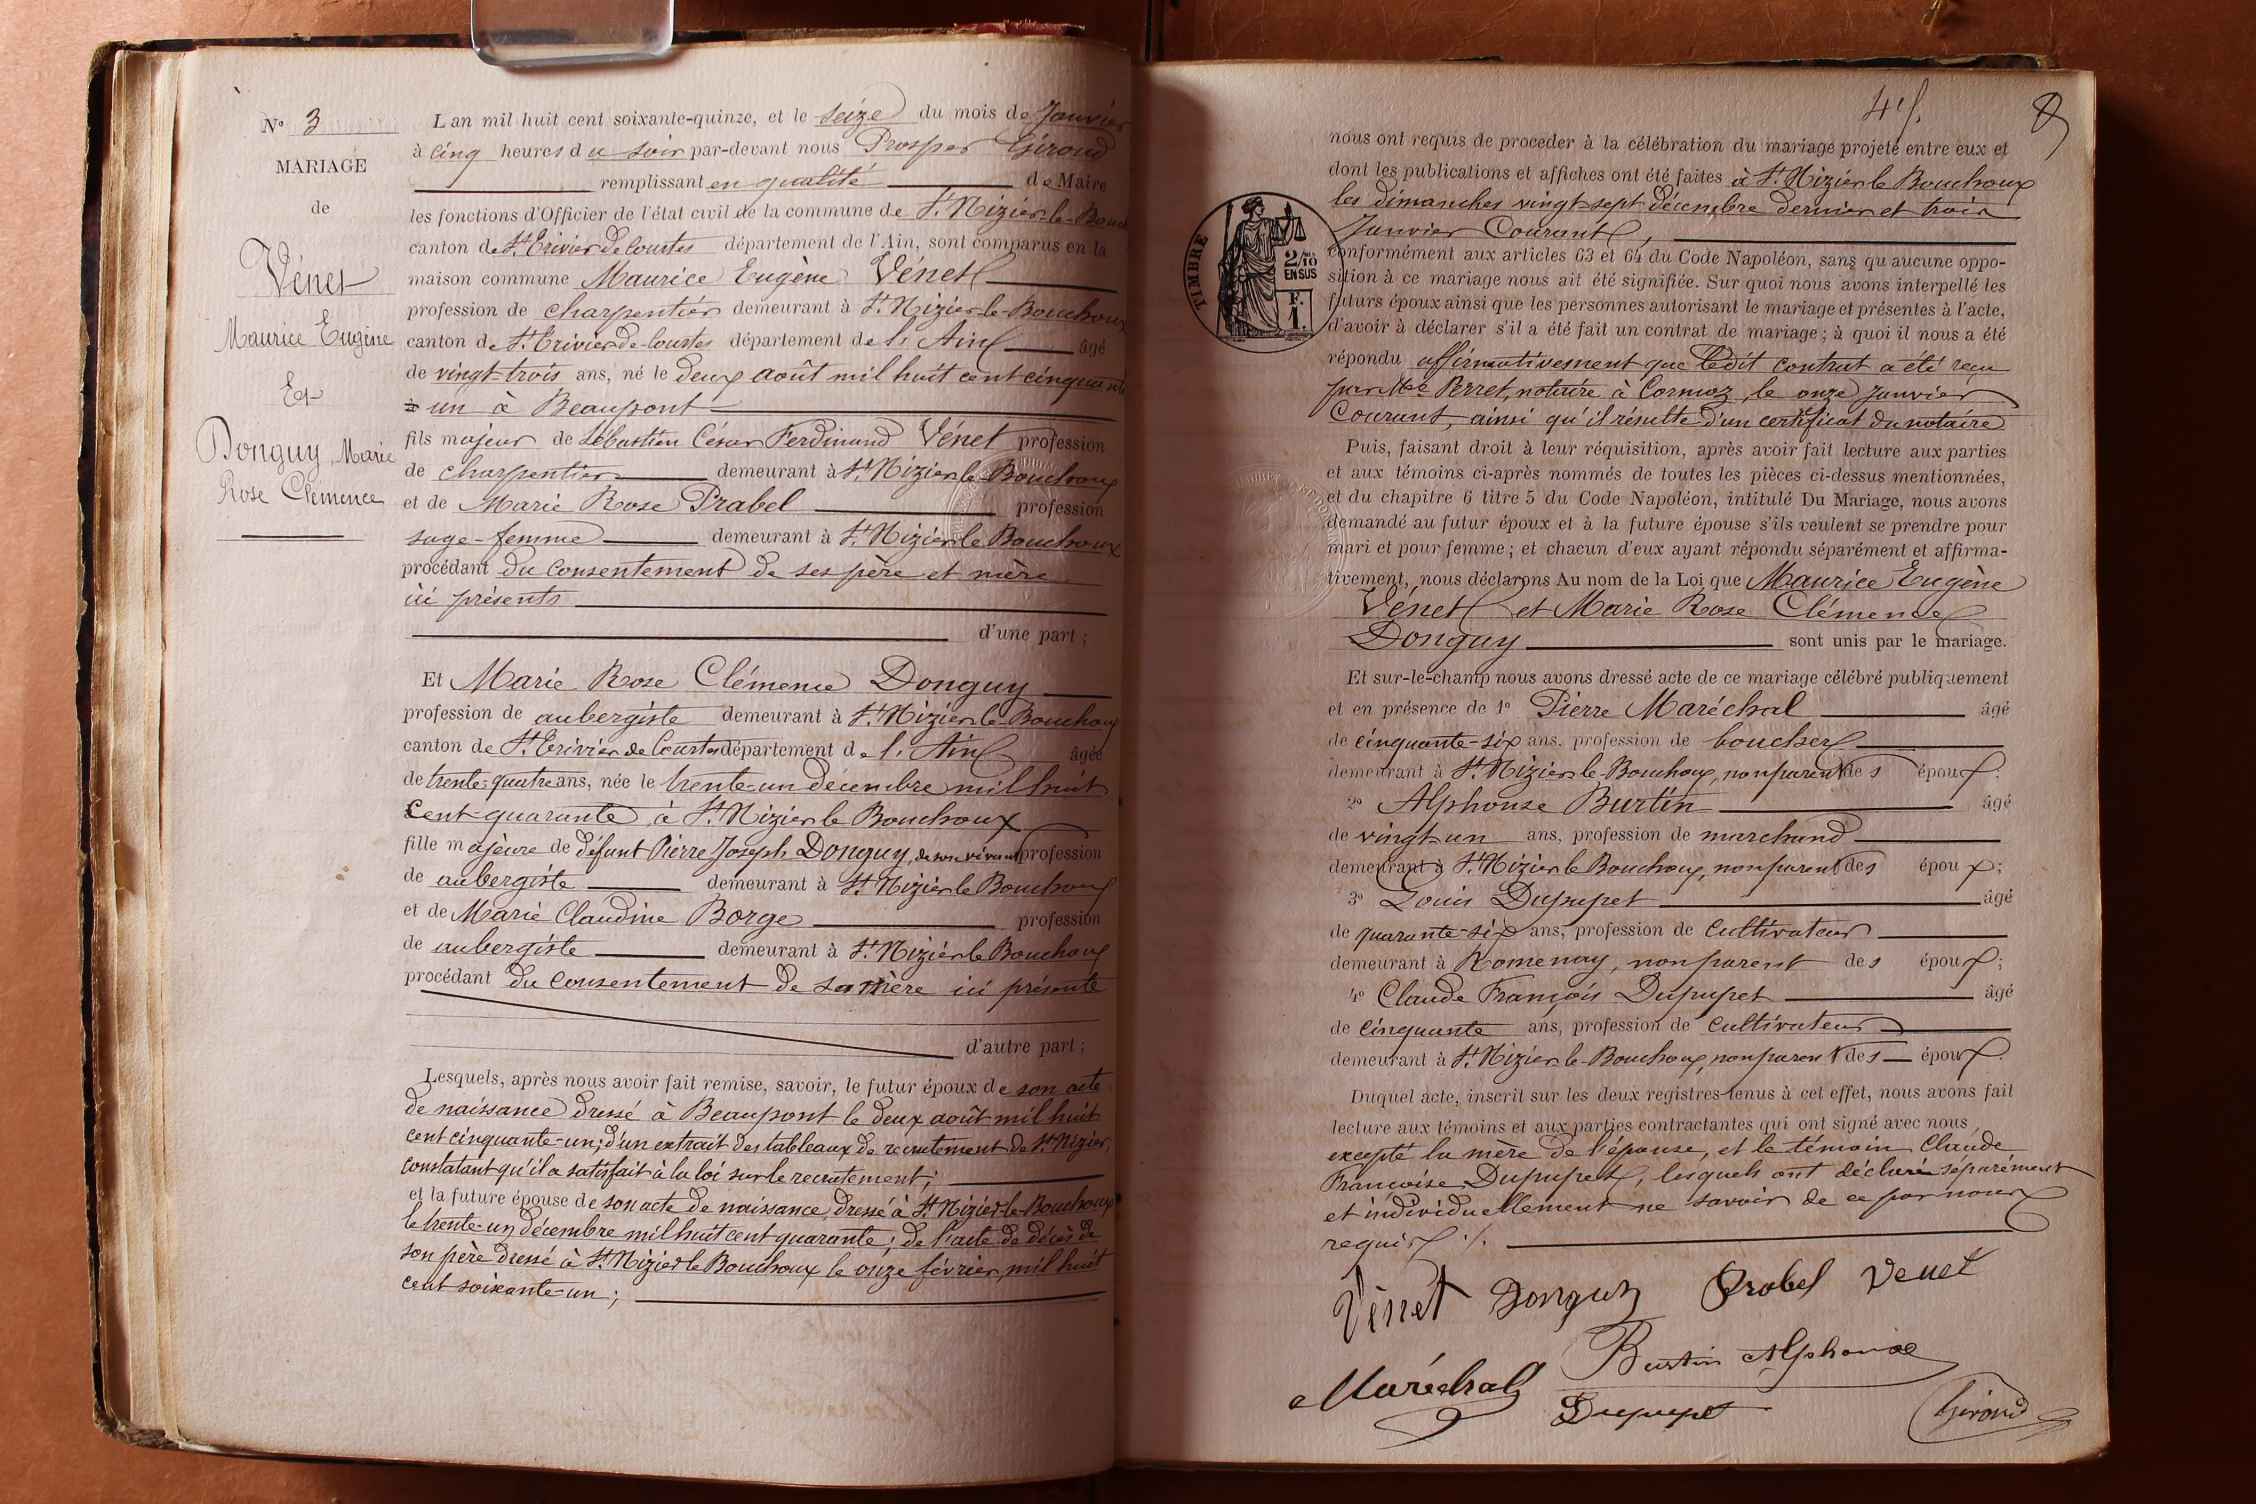 N° 3
MARIAGE
de
Vénet
Maurice Eugène
Et
Donguy, Marie
Rose Clémence
L'an mil huit cent soixante-quinze, et le seize du mois de Janvier
à cinq heures du soir par-devant nous Prosper Giroud
remplissant en qualité de Maire
les fonctions d'Officier de l'état civil de la commune de St Nizier-le-Bouch
canton de St Trivier de Courtes département de l'Ain, sont comparus en la
maison commune Maurice Eugène Vénet
profession de charpentier demeurant à St Nizier-le-Bouchoux
canton de St Trivier-de-Courtes département de l'Ain âgé
de vingt-trois ans, né le deux août mil huit cent cinquante
un à Beaupont
fils majeur de Sébastien César Ferdinand Vénet profession
de charpentier demeurant à St Nizier le Bouchoux
et de Marie Rose Prabel profession
sage-femme demeurant à St Nizier le Bouchoux
procédant du consentement de ses père et mère
ici présents
d'une part ;
Et Marie Rose Clémence Donguy
profession de aubergiste demeurant à St Nizier-le-Bouchoux
canton de St Trivier de Courtes département de l'Ain âgée
de trente-quatre ans, née le trente-un décembre mil huit
cent-quarante, à St Nizier le Bouchoux
fille majeure de défunt Pierre Joseph Donguy, de son vivant profession
de aubergiste demeurant à St Nizier le Bouchoux
et de Marie Claudine Borge profession
de aubergiste demeurant à St Nizier le Bouchoux
procédant du consentement de sa mère ici présente
d'autre part ;
Lesquels, après nous avoir fait remise, savoir, le futur époux de son acte
de naissance dressé à Beaupont le deux août mil huit
cent cinquante-un ; d'un extrait des tableaux de recrutement de St Nizier,
constatant qu'il a satisfait à la loi sur le recrutement ;
et la future épouse de son acte de naissance, dressé à St Nizier-le-Bouchoux
le trente-un décembre mil huit cent quarante ; de l'acte de décès de
son père dressé à St Nizier le Bouchoux le onze février mil huit
cent soixante-un ;
8
nous ont requis de procéder à la célébration du mariage projeté entre eux et
dont les publications et affiches ont été faites à St Nizier le Bouchoux
les dimanches vingt-sept décembre dernier et trois
Janvier Courant,
TIMBRE
2/10
EN SUS
F.
1.
conformément aux articles 63 et 64 du Code Napoléon, sans qu'aucune oppo-
sition à ce mariage nous ait été signifiée. Sur quoi nous avons interpellé les
futurs époux ainsi que les personnes autorisant le mariage et présentes à l'acte,
d'avoir à déclarer s'il a été fait un contrat de mariage ; à quoi il nous a été
répondu affirmativement que ledit contrat a été reçu
par Me Perret, notaire à Cormoz, le onze janvier
Courant, ainsi qu'il résulte d'un certificat du notaire
Puis, faisant droit à leur réquisition, après avoir fait lecture aux parties
et aux témoins ci-après nommés de toutes les pièces ci-dessus mentionnées,
et du chapitre 6 titre 5 du Code Napoléon, intitulé Du Mariage, nous avons
demandé au futur époux et à la future épouse s'ils veulent se prendre pour
mari et pour femme ; et chacun d'eux ayant répondu séparément et affirma-
tivement, nous déclarons Au nom de la Loi que Maurice Eugène
Vénet et Marie Rose Clémence
Donguy sont unis par le mariage.
Et sur-le-champ nous avons dressé acte de ce mariage célébré publiquement
et en présence de 1° Pierre Maréchal âgé
de cinquante-six ans, profession de boucher
demeurant à St Nizier-le-Bouchoux, non parent des époux ;
2° Alphonse Burtin âgé
de vingt-un ans, profession de marchand
demeurant à St Nizier le Bouchoux, non parent des époux ;
3° Louis Dupupet âgé
de quarante-six ans, profession de cultivateur
demeurant à Romenay, non parent des époux ;
4° Claude François Dupupet âgé
de cinquante ans, profession de cultivateur
demeurant à St Nizier-le-Bouchoux, non parent des époux.
Duquel acte, inscrit sur les deux registres tenus à cet effet, nous avons fait
lecture aux témoins et aux parties contractantes qui ont signé avec nous,
excepté la mère de l'épouse, et le témoin Claude
Françoise Dupupet, lesquels ont déclaré séparément
et individuellement ne savoir de ce par nous
requis ./.
Vénet Donguy Prabel Venet
Burtin Alphonse
Maréchal
Dupupet
Giroud